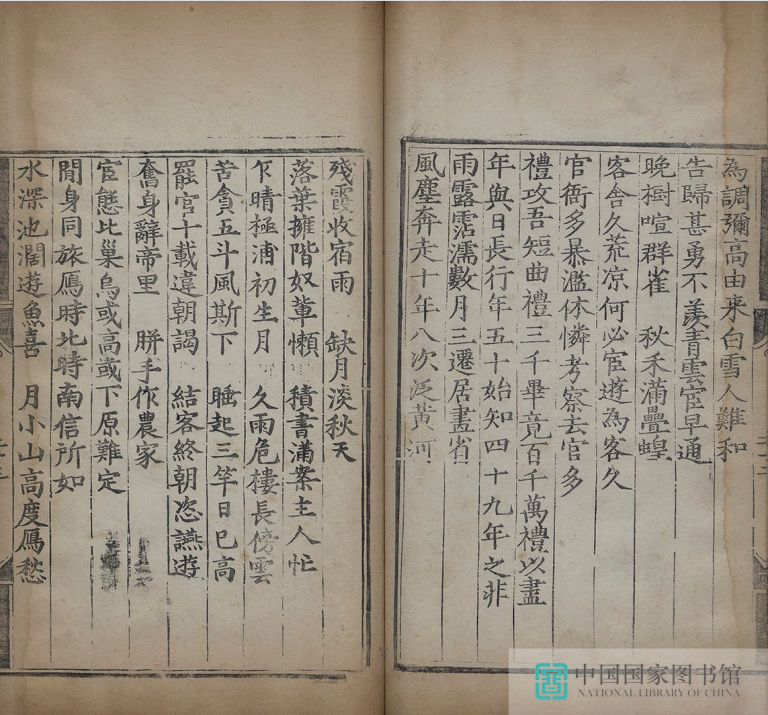 為調彌高由来白雪人難和
告歸甚勇不羨青雲宦早通
晚樹喧群雀　秋禾滿疊蝗
客舍久荒凉何必宦遊為客久
官衙多暴濫体憐考察去官多
禮攻吾短曲禮三千畢竟百千萬禮以盡
年與日長行年五十始知四十九年之非
雨露霑濡數月三遷居畫省
風塵奔走十年八次泛黃河
殘霞收宿雨　缺月淡秋天
落葉擁階奴輩懶　積書滿案主人忙
乍晴極浦初生月　久雨危樓長傍雲
苦貪五斗風斯下　睡起三竿日已高
罷官十載違朝謁　結客終朝恣讌遊
奮身辭帝里　胼手作農家
宦態比巢烏或高或下原難定
閒身同旅鴈時北時南信所如
水深池濶遊魚喜　月小山高度鴈愁
中国国家图书馆
NATIONAL LIBRARY OF CHINA